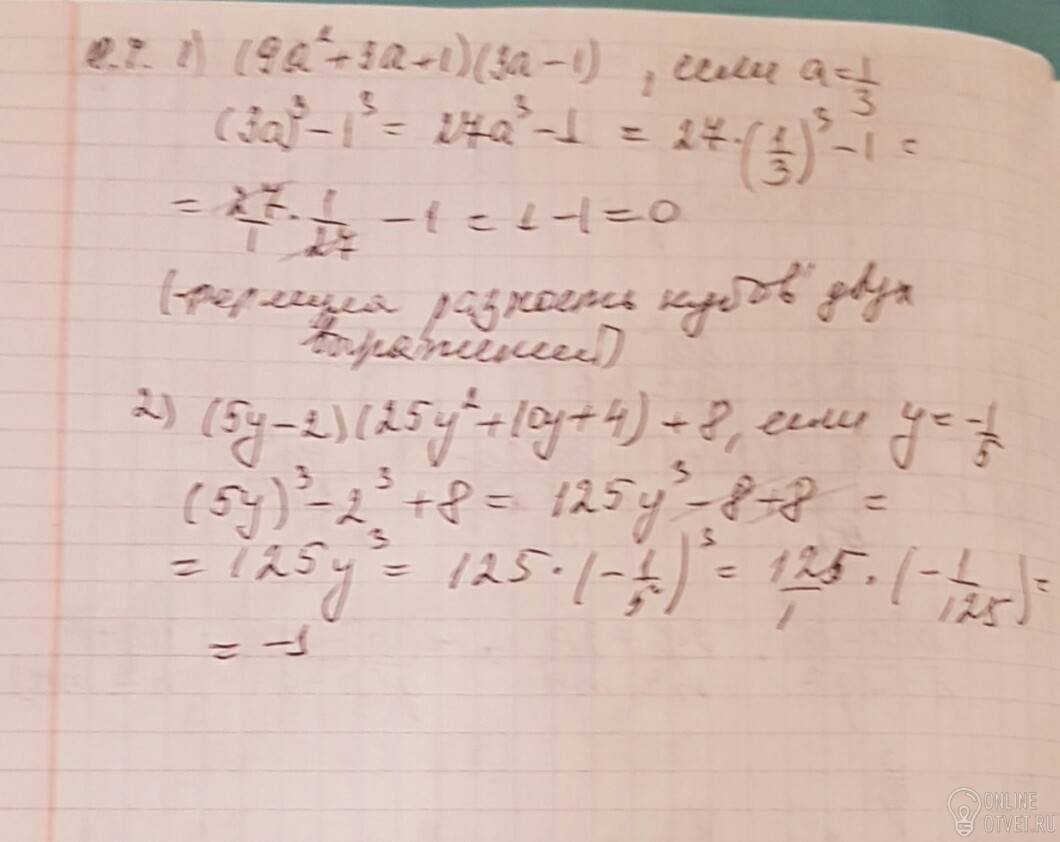 1) (9a²+3a+1)(3a-1), если a=1/3
(3a)³-1³ = 27a³-1 = 27·(1/3)³-1 =
= 27/1 · 1/27 - 1 = 1-1=0
(формула разность кубов двух
выражений)
2) (5y-2)(25y²+10y+4)+8, если y=-1/5
(5y)³-2³+8 = 125y³-8+8 =
= 125y³ = 125·(-1/5)³ = 125/1 · (-1/125) =
= -1
ONLINE
OTVET.RU